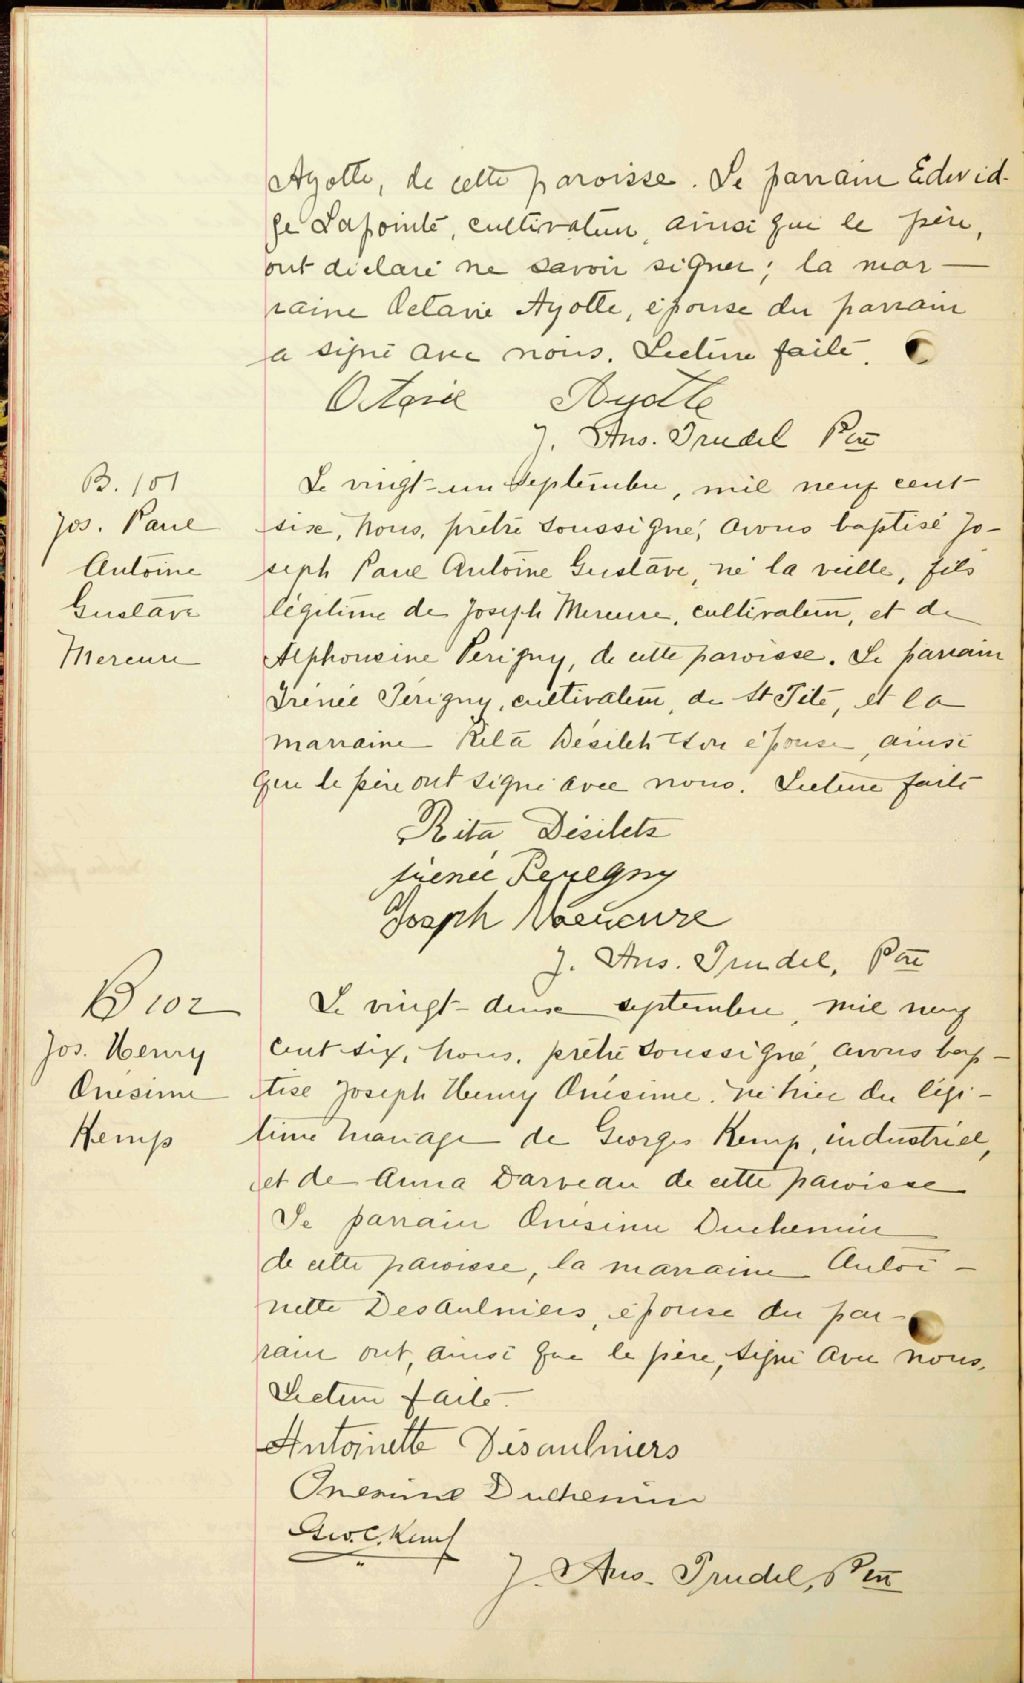 Ayotte, de cette paroisse. Le parrain Edwid-
ge Lapointe, cultivateur, ainsi que le père,
ont déclaré ne savoir signer; la mar-
raine Octavie Ayotte, épouse du parrain
a signé avec nous. Lecture faite.
Octavie Ayotte
J. Ans. Trudel Ptre
B. 101
Jos. Paul
Antoine
Gustave
Mercure
Le vingt-un septembre, mil neuf cent
six, nous, prêtre soussigné, avons baptisé Jo-
seph Paul Antoine Gustave, né la veille, fils
légitime de Joseph Mercure, cultivateur, et de
Alphonsine Perigny, de cette paroisse. Le parrain
Irénée Périgny, cultivateur, de St Tite, et la
marraine Rita Désilets son épouse, ainsi
que le père ont signé avec nous. Lecture faite
Rita Désilets
Irenée Peregny
Joseph Mercure
J. Ans. Trudel, Ptre
B 102
Jos. Henry
Onésime
Kemp
Le vingt-deux septembre, mil neuf
cent six, nous, prêtre soussigné, avons bap-
tisé Joseph Henry Onésime, né hier du légi-
time mariage de Georges Kemp, industriel,
et de Anna Darveau de cette paroisse
Le parrain Onésime Duchemin
de cette paroisse, la marraine Antoi-
nette DesAulniers, épouse du par-
rain ont, ainsi que le père, signé avec nous.
Lecture faite.
Antoinette Désaulniers
Onesime Duchemin
Geo. C. Kemp
J. Ans. Trudel, Ptre